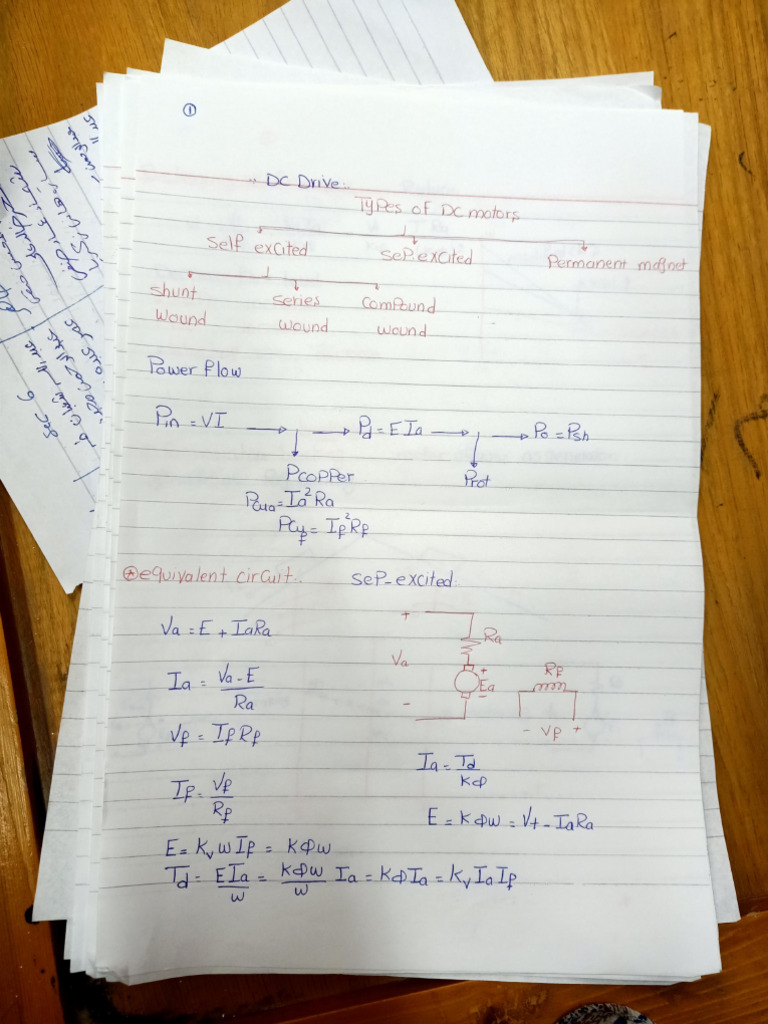 ①
DC Drive:.
Types of DC motors
Self excited seP.excited Permanent magnet
shunt wound series wound compound wound
Power flow
Pin = VI → → Pd = E Ia → → Po = Psh
Pcopper Prot
Pcua = Ia²Ra
Pcuf = If²Rf
⊛ equivalent circuit.. seP_excited:
Va = E + IaRa
+ Ra
Va + Ea -
Rf
- Vf +
Ia = Va - E / Ra
Vf = If Rf
Ia = Td / kΦ
If = Vf / Rf
E = kΦw = Vt - IaRa
E = Kv w If = kΦw
Td = E Ia / w = kΦw / w Ia = kΦ Ia = Kv Ia If
sec 6